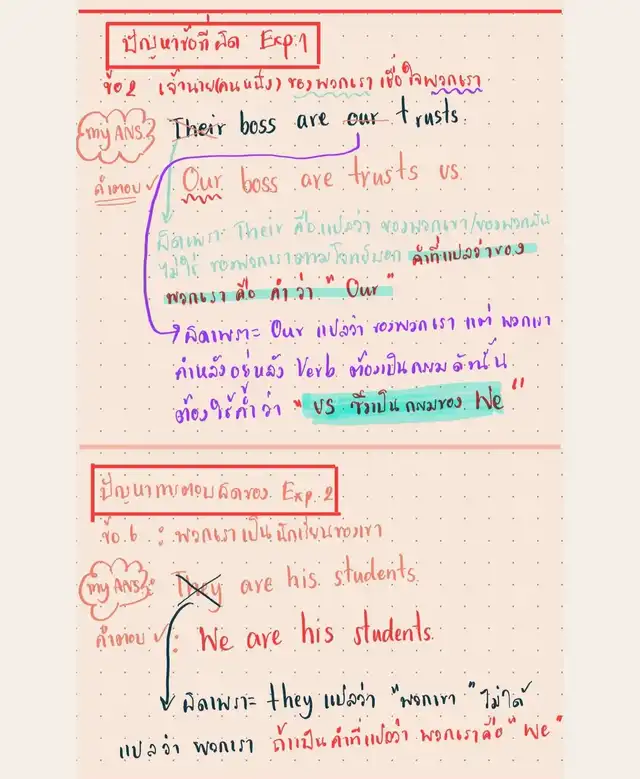 ปัญหาข้อที่ผิด Exp.1
ข้อ2 เจ้านาย(คนหนึ่ง) ของพวกเรา เชื่อใจพวกเรา
my ANS: Their boss are our trusts.
คำตอบ Our boss are trusts us.
ผิดเพราะ Their คือแปลว่า ของพวกเขา/ของพวกมัน
ไม่ใช่ ของพวกเราตามโจทย์บอก คำที่แปลว่าของ
พวกเรา คือ คำว่า " Our "
ผิดเพราะ Our แปลว่า ของพวกเรา แต่ พวกเรา
คำหลังอยู่หลัง Verb ต้องเป็นกรรม ดังนั้น
ต้องใช้คำว่า " us ซึ่งเป็น กรรมของ We "
ปัญหาการตอบผิดของ Exp. 2
ข้อ.6 : พวกเราเป็นนักเรียนของเขา
my ANS: They are his students.
คำตอบ : We are his students.
ผิดเพราะ they แปลว่า "พวกเขา" ไม่ได้
แปลว่า พวกเรา ถ้าเป็นคำที่แปลว่า พวกเราคือ "We"